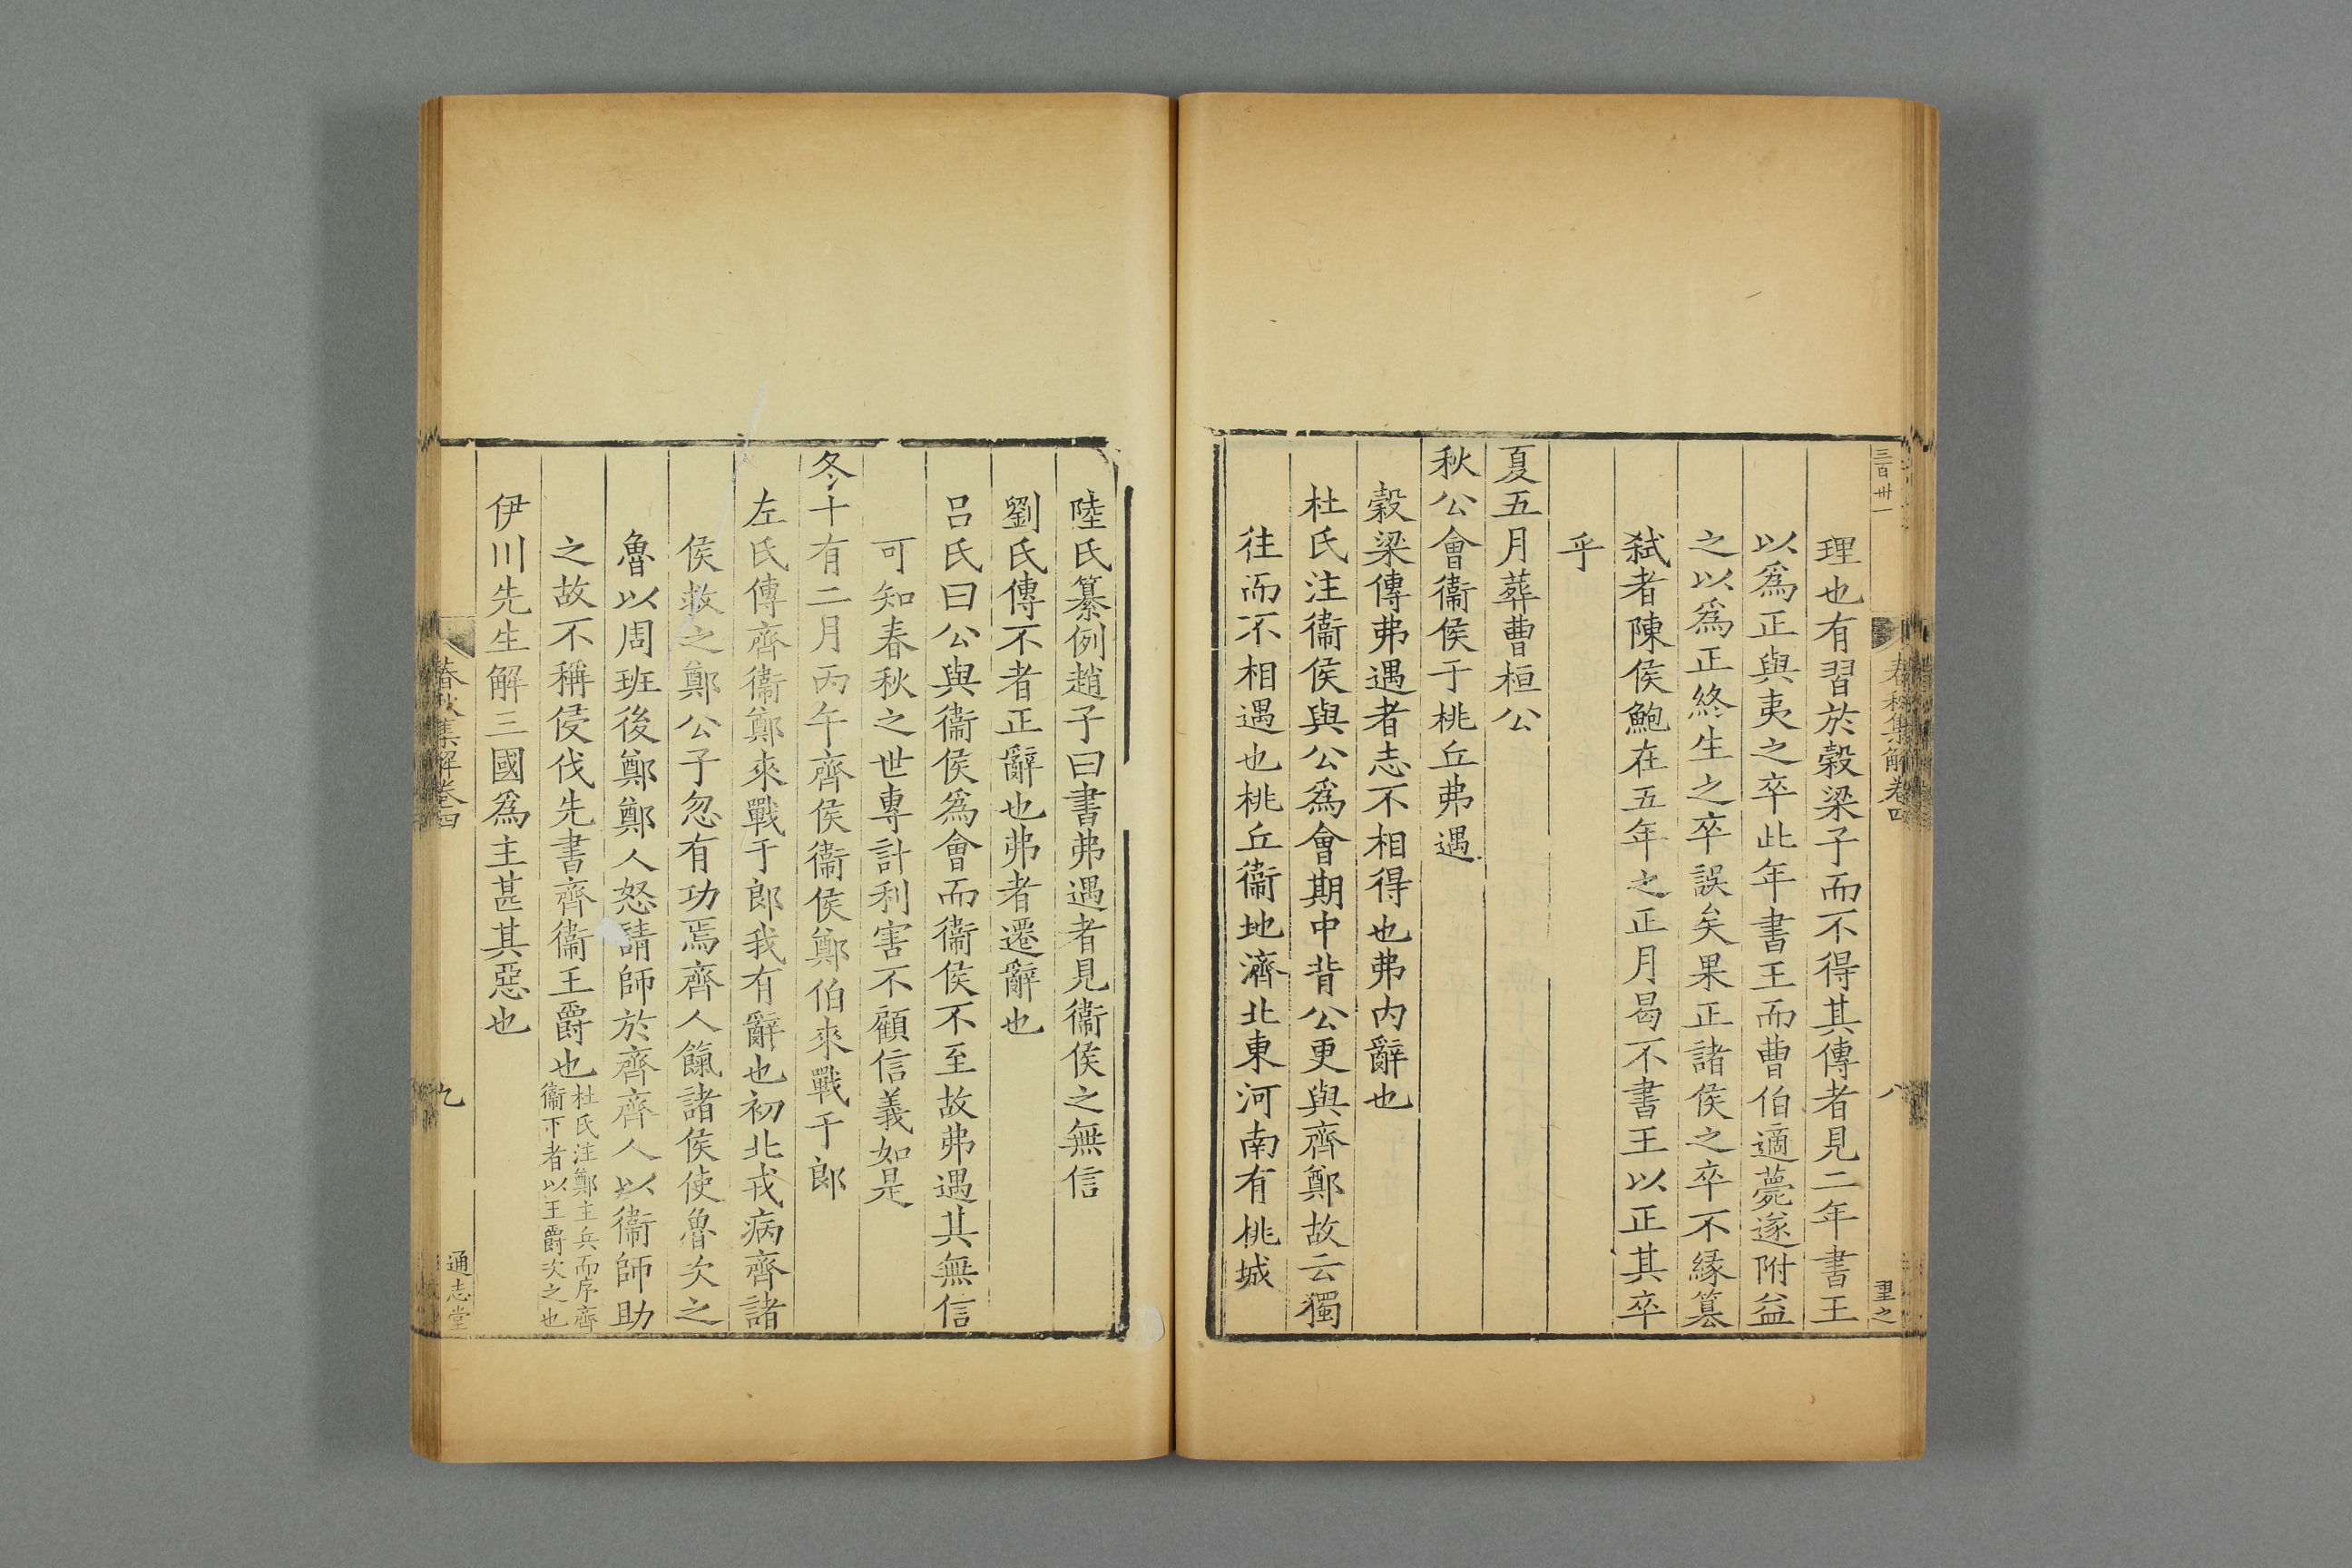 三百卅一
春秋集解卷四
八
重之
理也有習於榖梁子而不得其傳者見二年書王
以爲正與夷之卒此年書王而曹伯適薨遂附益
之以爲正終生之卒誤矣果正諸侯之卒不縁篡
弑者陳侯鮑在五年之正月曷不書王以正其卒
乎
夏五月葬曹桓公
秋公會衞侯于桃丘弗遇
榖梁傳弗遇者志不相得也弗内辭也
杜氏注衞侯與公爲會期中背公更與齊鄭故云獨
往而不相遇也桃丘衞地濟北東河南有桃城
陸氏纂例趙子曰書弗遇者見衞侯之無信
劉氏傳不者正辭也弗者遷辭也
呂氏曰公與衞侯爲會而衞侯不至故弗遇其無信
可知春秋之世專計利害不顧信義如是
冬十有二月丙午齊侯衞侯鄭伯來戰于郎
左氏傳齊衞鄭來戰于郎我有辭也初北戎病齊諸
侯救之鄭公子忽有功焉齊人餼諸侯使魯次之
魯以周班後鄭鄭人怒請師於齊齊人以衞師助
之故不稱侵伐先書齊衞王爵也杜氏注鄭主兵而序齊
衞下者以王爵次之也
伊川先生解三國爲主甚其惡也
春秋集解卷四
九
通志堂